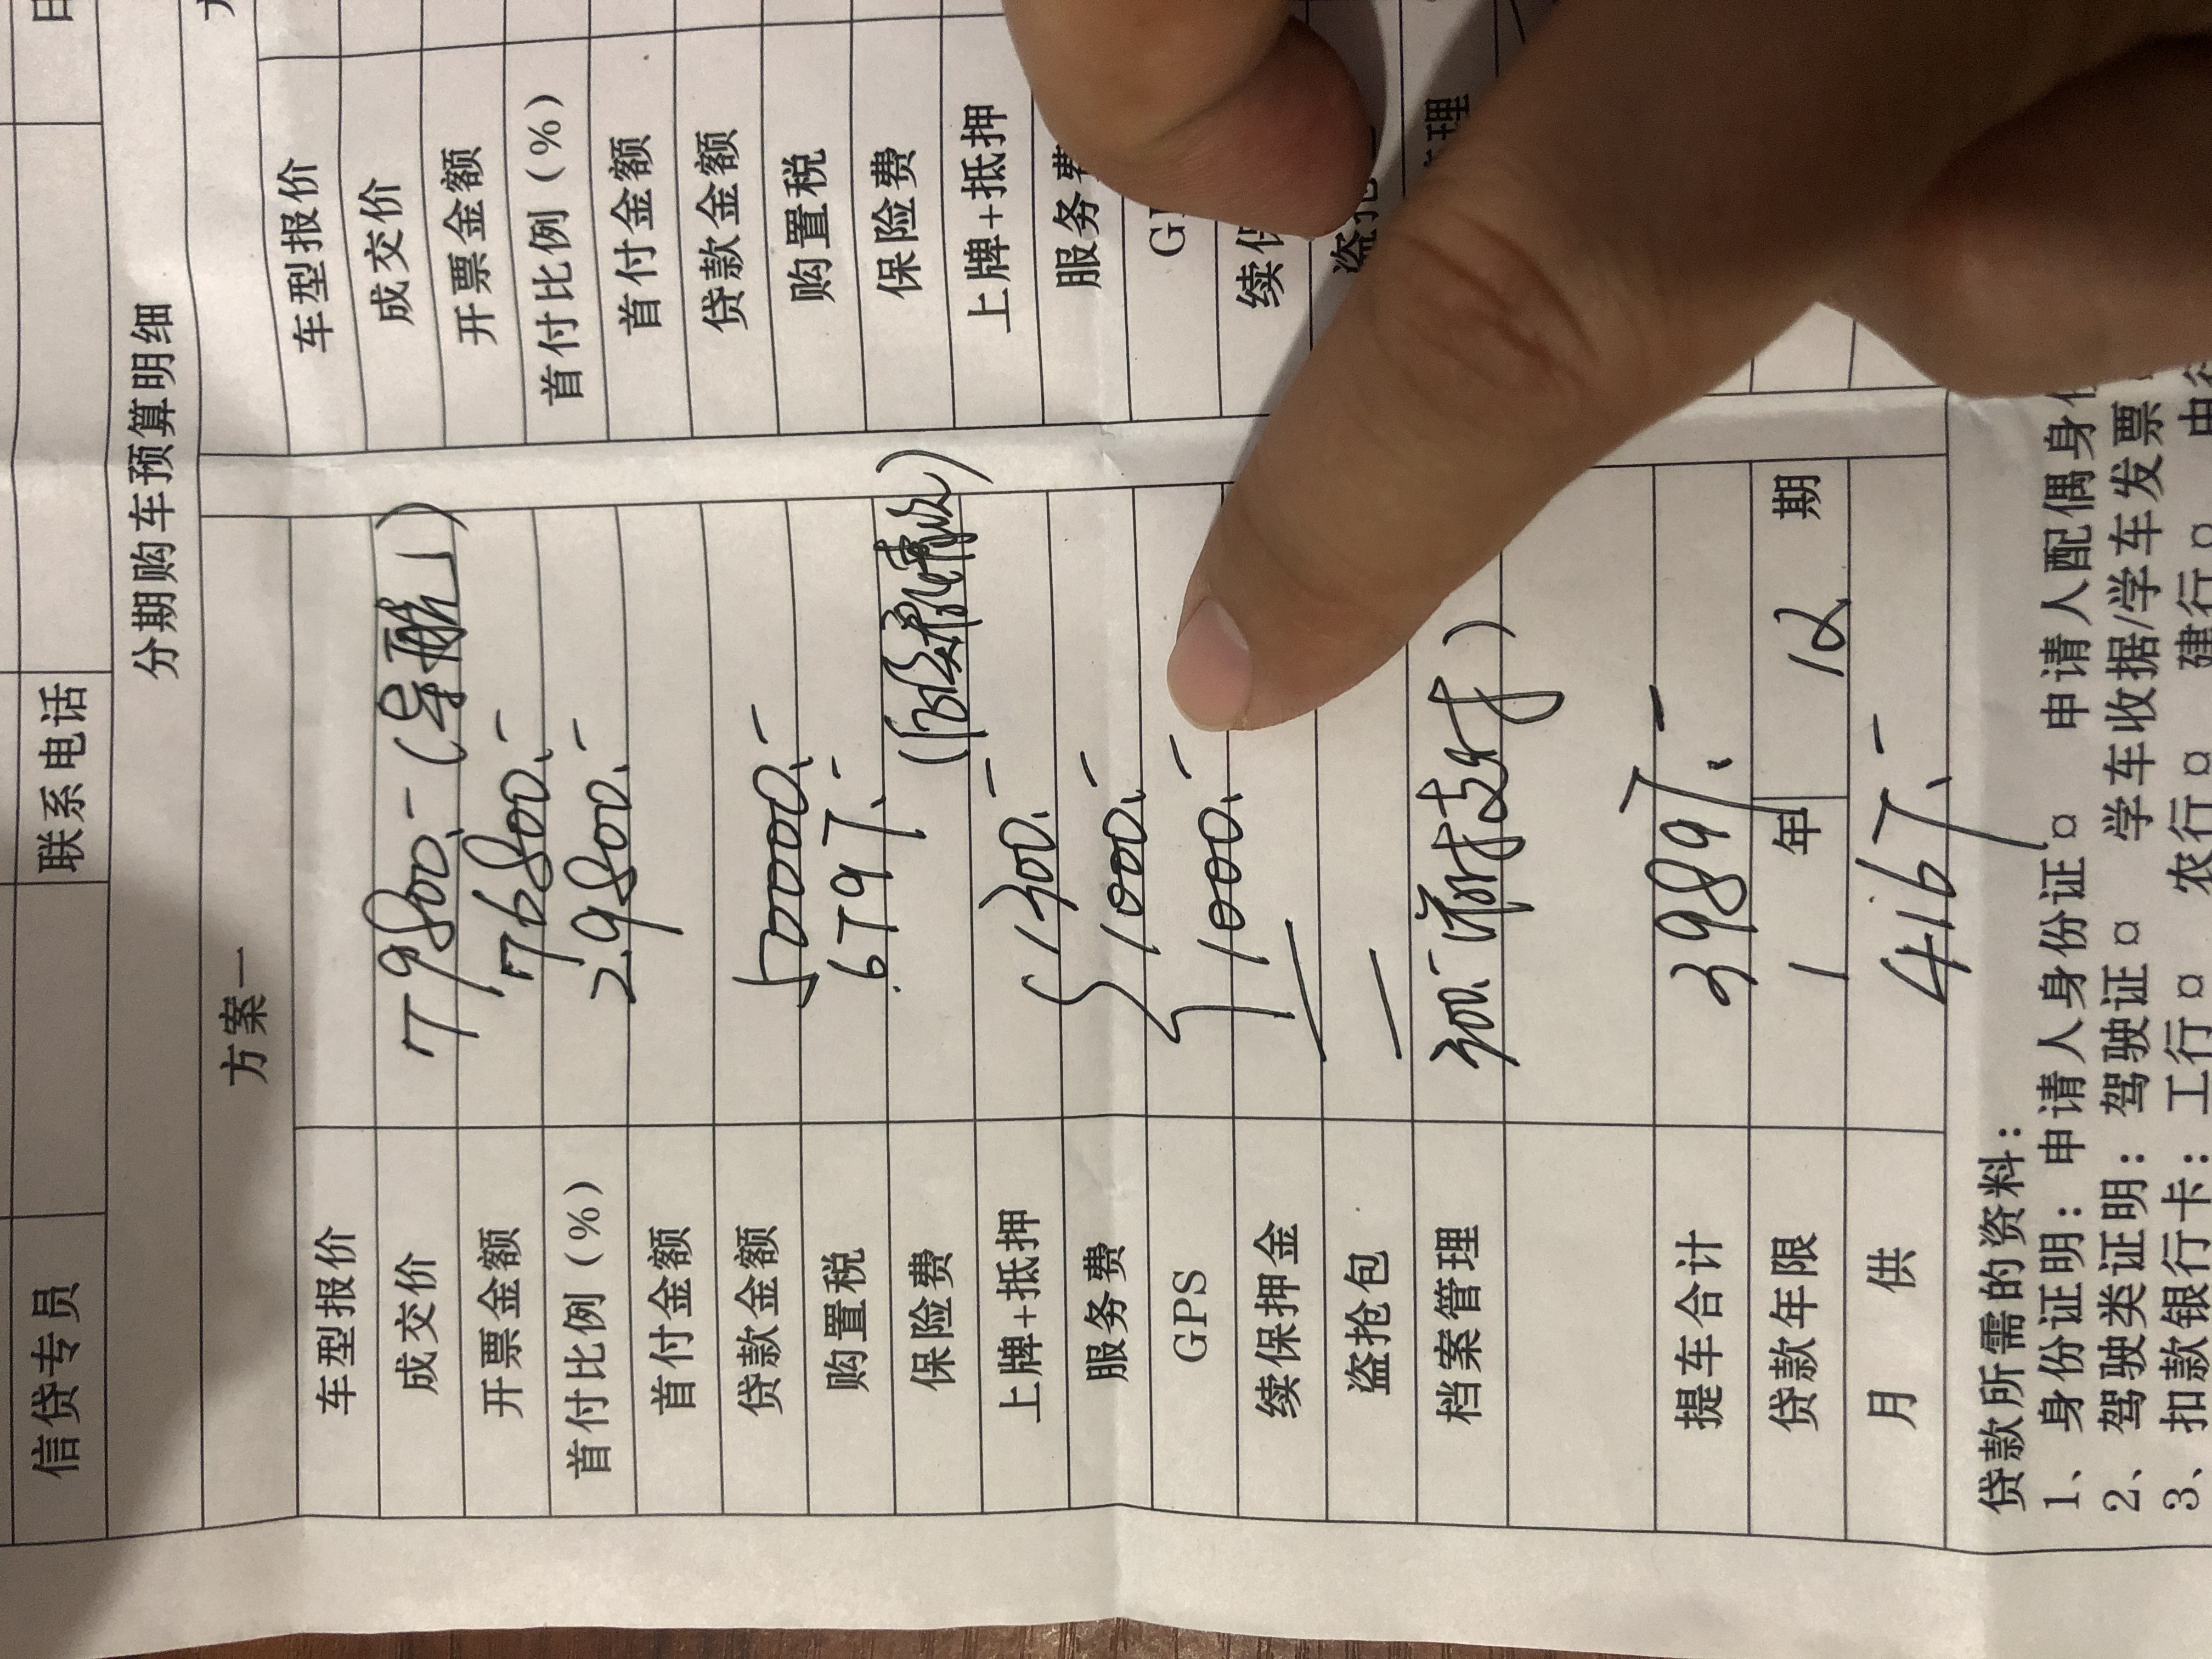 信贷专员 联系电话
分期购车预算明细
方案一
车型报价 车型报价
成交价 79800.- (导航) 成交价
开票金额 76800.- 开票金额
首付比例(%) 29800.- 首付比例(%)
首付金额 首付金额
贷款金额 50000.- 贷款金额
购置税 6797.- 购置税
保险费 保险费
上牌+抵押 1300.- 上牌+抵押
服务费 1000.- 服务
GPS 1000.-
续保押金 — 续
盗抢包 —
档案管理 300.- 理
提车合计 39897.-
贷款年限 1 年 12 期
月 供 4167.-
贷款所需的资料:
1、身份证明:申请人身份证¤ 申请人配偶身
2、驾驶类证明:驾驶证¤ 学车收据/学车发票
3、扣款银行卡:工行¤ 农行¤ 建行¤